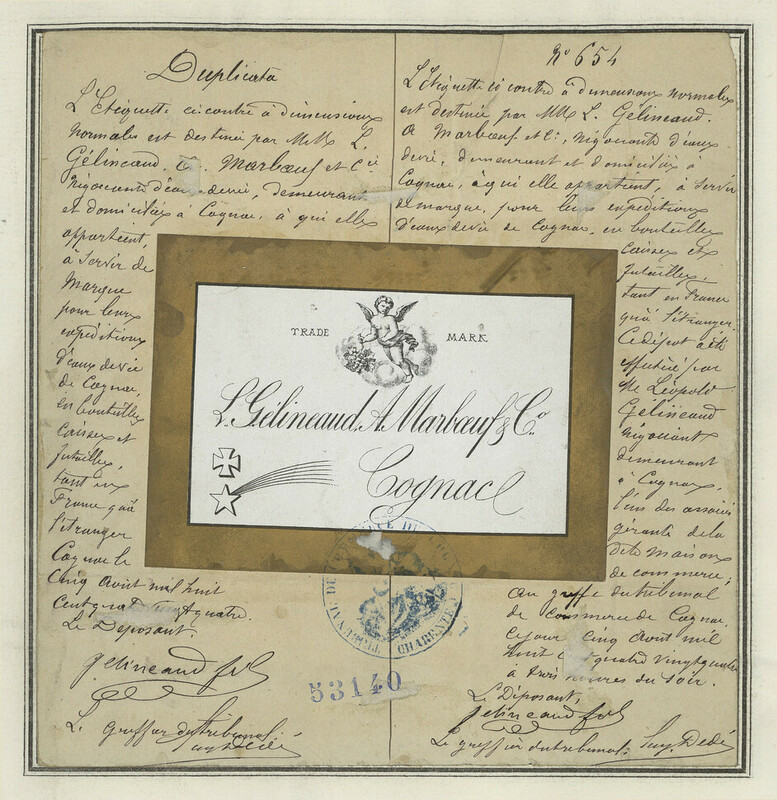 Duplicata
L'Etiquette ci contre à dimensions
normales est destinée par M.M. L.
Gélineaud, A. Marbœuf et Cie
négociants d'eaux devie, demeurant
et domiciliés à Cognac, à qui elle
appartient,
à servir de
Marque
pour leurs
expéditions
d'eaux de vie
de Cognac,
en bouteilles
caisses et
futailles,
tant en
France qu'à
l'étranger
Cognac le
Cinq Août mil huit
cent quatre
Le Déposant.
Gélineaud
L. greffier du tribunal
Nº 654
L'Etiquette ci contre à dimensions normales
est destinée par MM. L. Gélineaud.
A Marbœuf et Cie, négociants d'eaux
devie, demeurant et domiciliés à
Cognac, à qui elle appartient, à servir
de marque, pour leurs expéditions
d'eaux de vie de Cognac, en bouteilles
caisses et
futailles,
tant en France
qu'à l'étranger.
Ce dépôt a été
effectué par
Mr Léopold
Gélineaud
négociant
demeurant
à Cognac,
l'un des associés
gérants de la
dite maison
de commerce,
au greffe du tribunal
de commerce de Cognac,
ce jour cinq Août mil
huit cent quatre vingt quatre
à trois heures du soir.
L. Déposant,
Gélineaud
Le greffier du tribunal.
TRADE MARK
L. Gélineaud, A. Marbœuf & Co.
Cognac
TRIBUNAL DE COMMERCE DE COGNAC
CHARENTE
53140